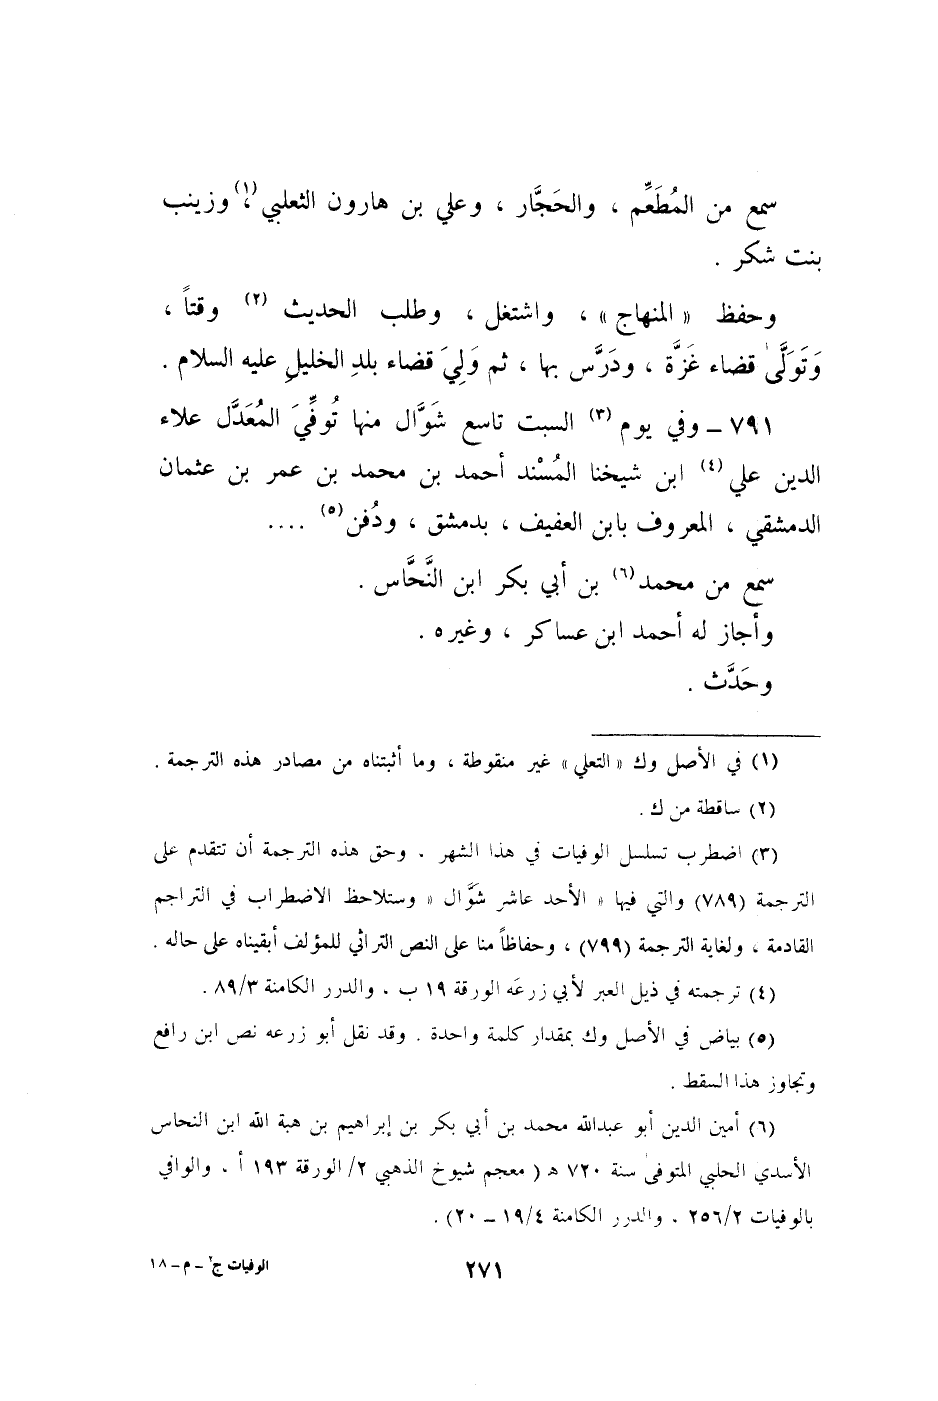 سمع من المُطَعِّم ، والحَجَّار ، وعلي بن هارون الثعلبي(١)، وزينب
بنت شكر .
وحفظ « المنهاج » ، واشتغل ، وطلب الحديث (٢) وقتاً ،
وَتَوَلَّىٰ قضاء غَزَّة ، ودَرَّس بها ، ثم وَلِيَ قضاء بلدِ الخليلِ عليه السلام .
٧٩١ ــ وفي يوم (٣) السبت تاسع شَوَّال منها تُوفِّيَ المُعَدَّل علاء
الدين علي (٤) ابن شيخنا المُسْند أحمد بن محمد بن عمر بن عثمان
الدمشقي ، المعروف بابن العفيف ، بدمشق ، ودُفن (٥) ....
سمع من محمد (٦) بن أبي بكر ابن النَّحَّاس .
وأجاز له أحمد ابن عساكر ، وغيره .
وحَدَّث .
(١) في الأصل وك « التعلي » غير منقوطة ، وما أثبتناه من مصادر هذه الترجمة .
(٢) ساقطة من ك .
(٣) اضطرب تسلسل الوفيات في هذا الشهر . وحق هذه الترجمة أن تتقدم على
الترجمة (٧٨٩) والتي فيها « الأحد عاشر شَوَّال » وستلاحظ الاضطراب في التراجم
القادمة ، ولغاية الترجمة (٧٩٩) ، وحفاظاً منا على النص التراثي للمؤلف أبقيناه على حاله .
(٤) ترجمته في ذيل العبر لأبي زرعَه الورقة ١٩ ب . والدرر الكامنة ٨٩/٣ .
(٥) بياض في الأصل وك بمقدار كلمة واحدة . وقد نقل أبو زرعه نص ابن رافع
وتجاوز هذا السقط .
(٦) أمين الدين أبو عبدالله محمد بن أبي بكر بن إبراهيم بن هبة الله ابن النحاس
الأسدي الحلبي المتوفىٰ سنة ٧٢٠ هـ ( معجم شيوخ الذهبي ٢/ الورقة ١٩٣ أ . والوافي
بالوفيات ٢٥٦/٢ . والدرر الكامنة ١٩/٤ ــ ٢٠) .
٢٧١
الوفيات ج٢ ــ م ــ ١٨